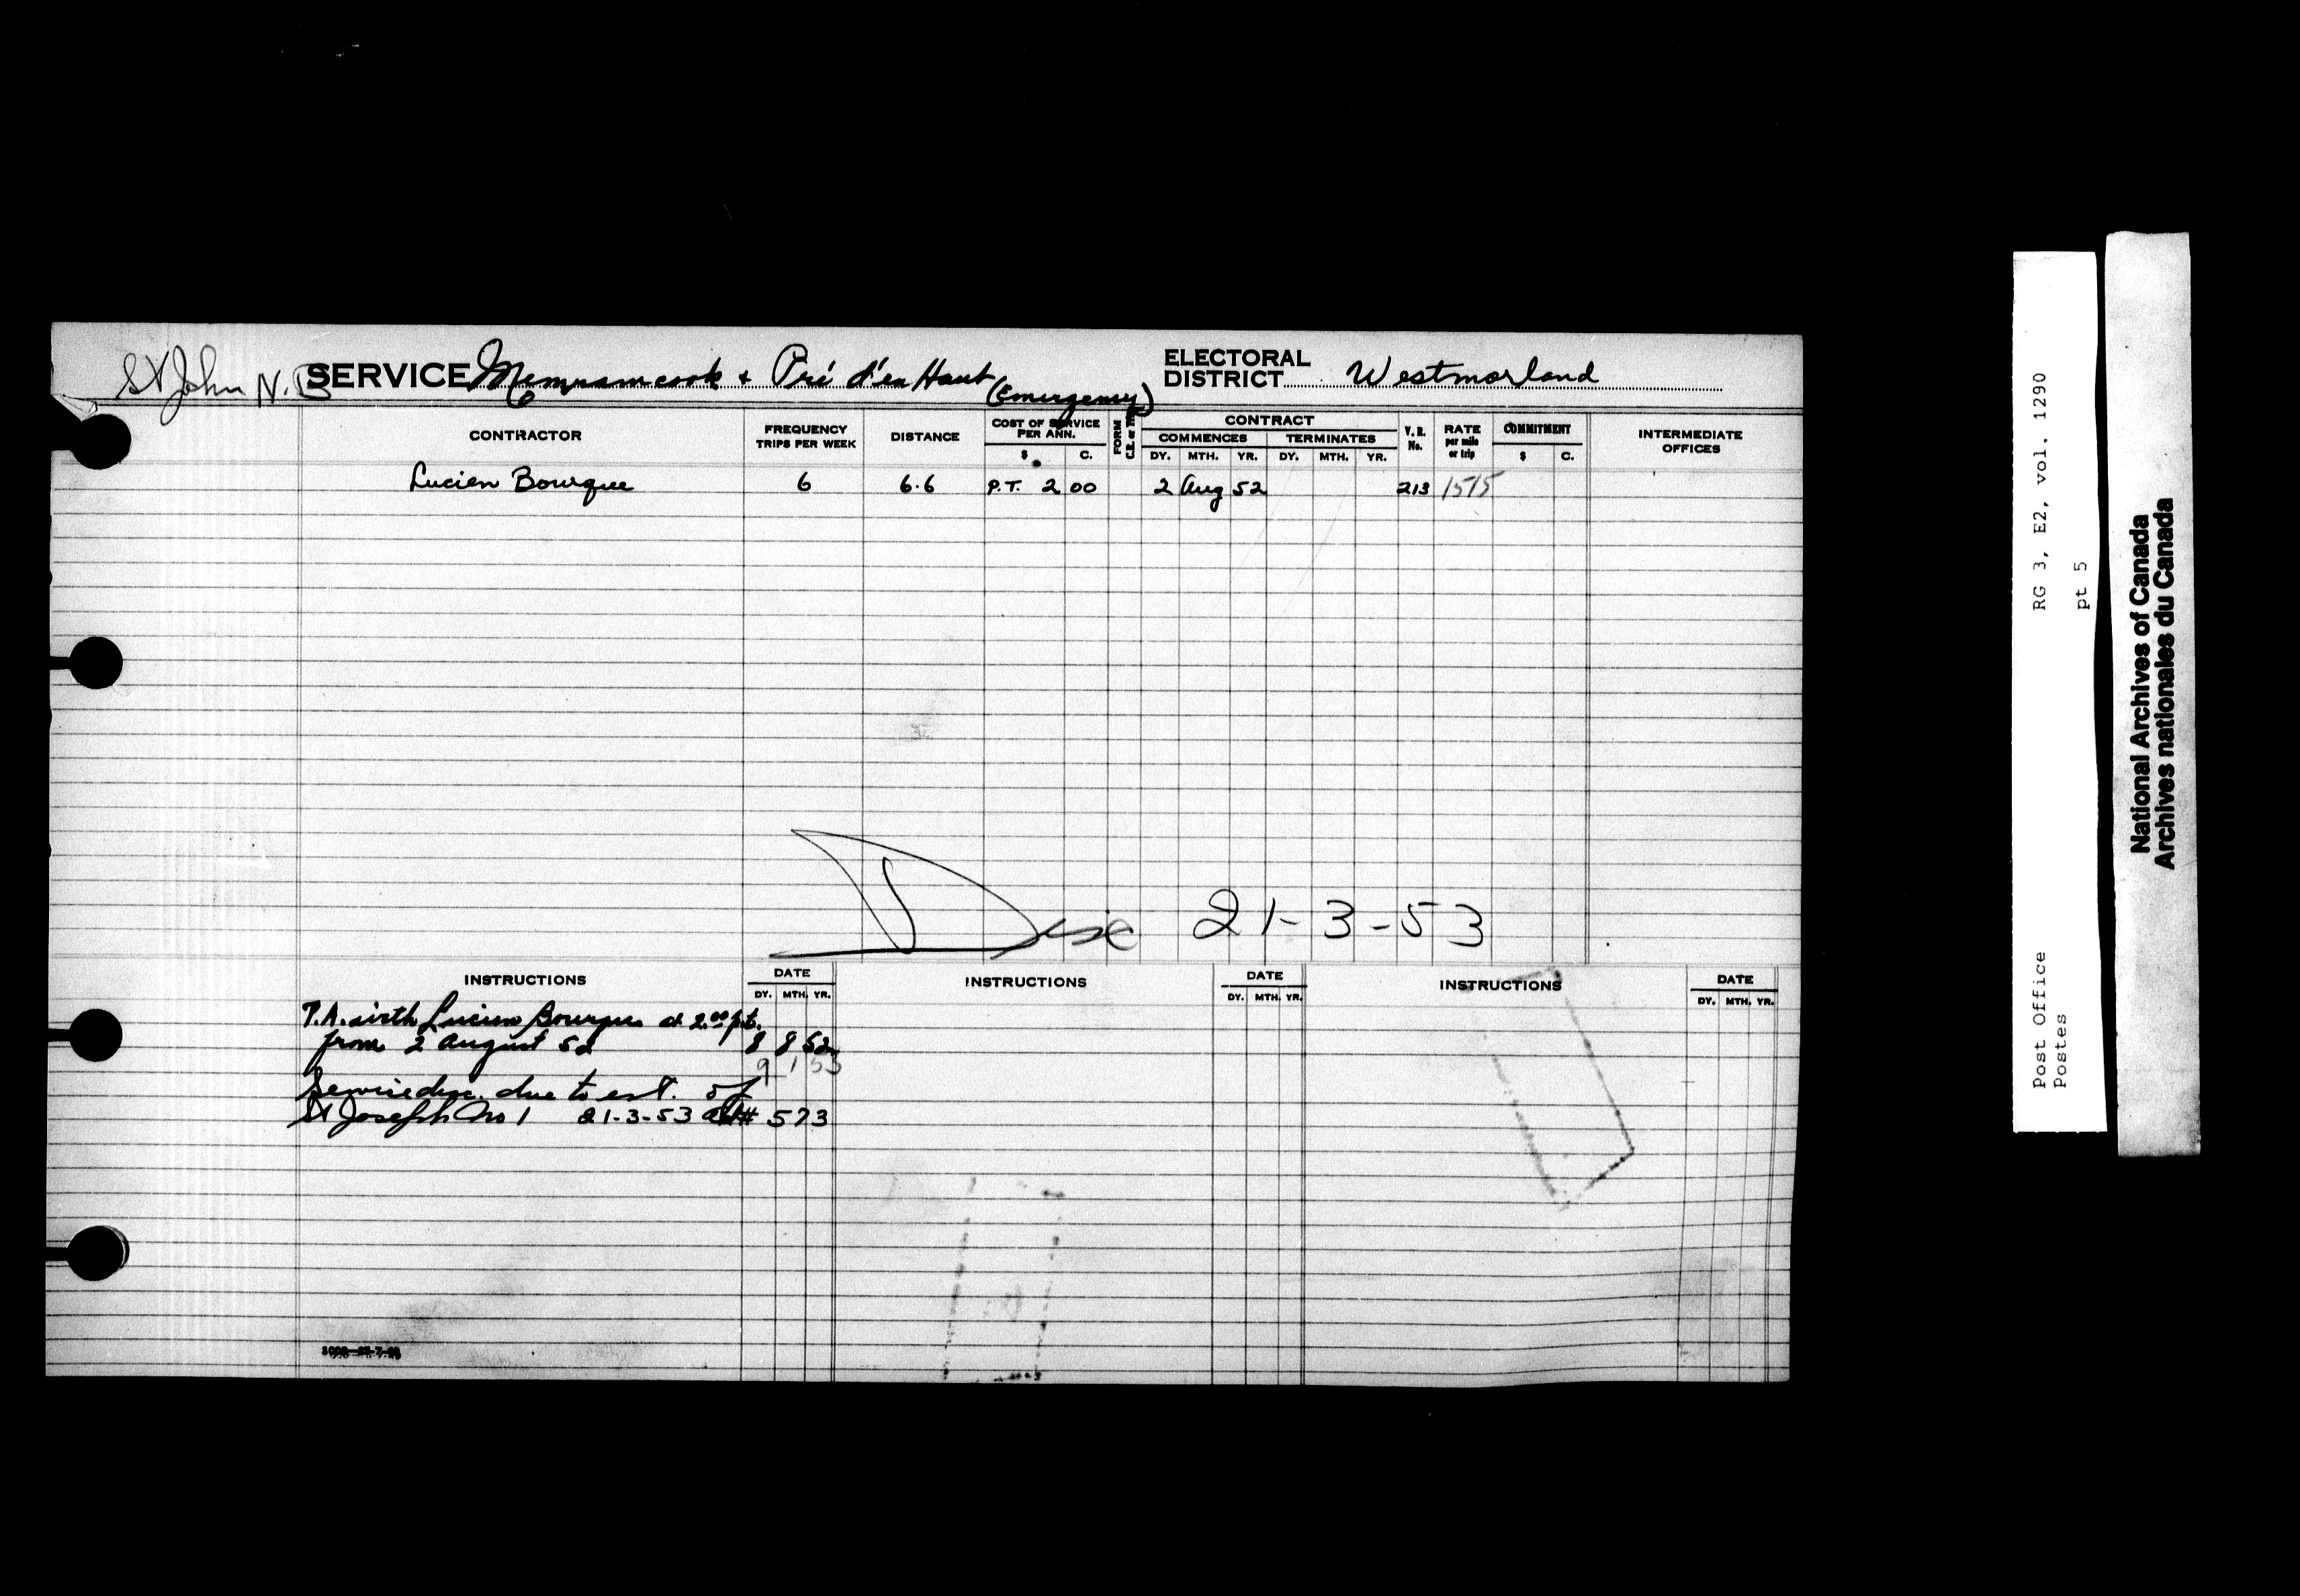 St John N.B
SERVICE Memramcook & Pré d'en Haut (Emergency)
ELECTORAL DISTRICT Westmorland
CONTRACTOR
FREQUENCY TRIPS PER WEEK
DISTANCE
COST OF SERVICE PER ANN.
$ C.
FORM
CONTRACT
COMMENCES TERMINATES
DY. MTH. YR. DY. MTH. YR.
V.R. No.
RATE per mile or trip
COMMITMENT
$ C.
INTERMEDIATE OFFICES
Lucien Bourque 6 6.6 P.T. 2 00 2 Aug 52 213 1515
Disc 21-3-53
INSTRUCTIONS DATE INSTRUCTIONS DATE INSTRUCTIONS DATE
DY. MTH. YR. DY. MTH. YR. DY. MTH. YR.
T.A. with Lucien Bourque at 2.00 p.t.
from 2 August 52 8 8 52
9 1 53
Service disc. due to est. of
St Joseph No 1 21-3-53 # 573
RG 3, E2, vol. 1290
pt 5
Post Office
Postes
National Archives of Canada
Archives nationales du Canada